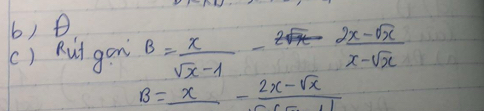 b) Đ
c) Rút gọn B = x/(√x-1) - (2x-√x)/(x-√x)
B = x - 2x-√x